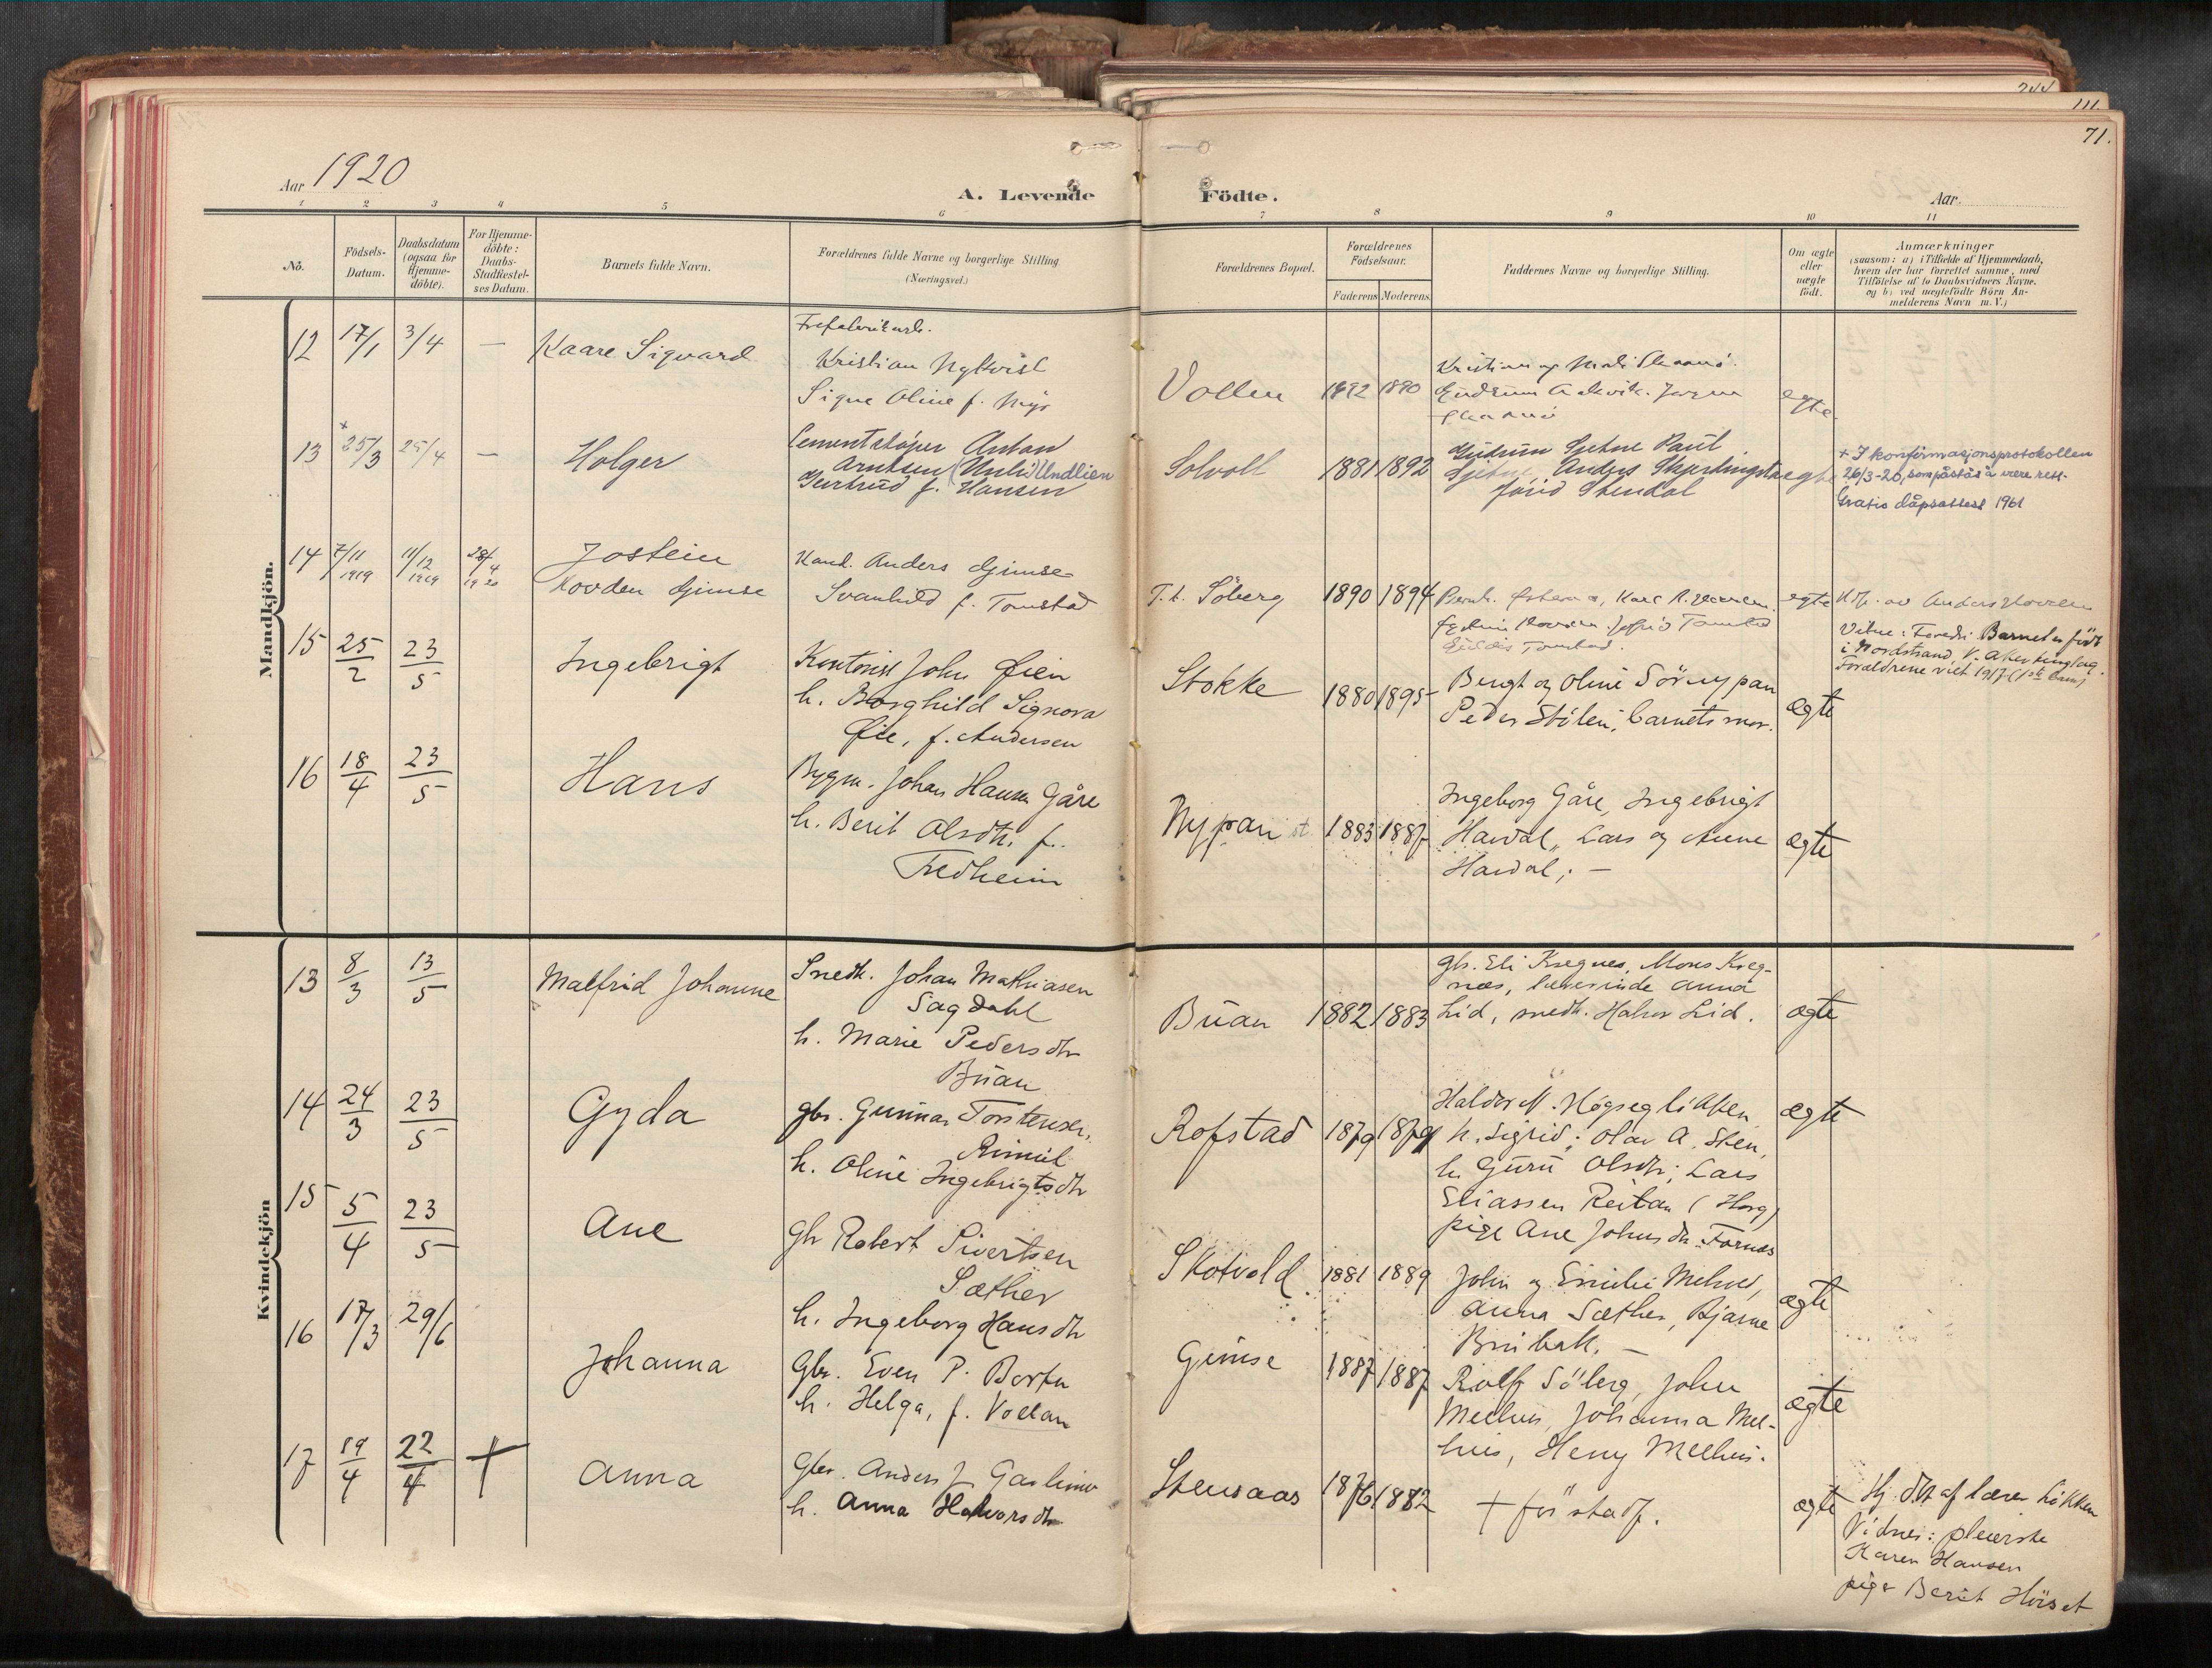 244
111.
71.
Aar 1920
A. Levende Födte.
Aar
1 2 3 4 5 6 7 8 9 10 11
No.
Födsels-
Datum.
Daabsdatum
(ogsaa for
Hjemme-
döbte).
For Hjemme-
döbte:
Daabs-
Stadfæstel-
ses Datum.
Barnets fulde Navn.
Forældrenes fulde Navne og borgerlige Stilling.
(Næringsvei.)
Forældrenes Bopæl.
Forældrenes
Födselsaar.
Faderens Moderens
Faddernes Navne og borgerlige Stilling.
Om ægte
eller
uægte
födt.
Anmærkninger
(saasom: a) i Tilfælde af Hjemmedaab,
hvem der har forrettet samme, med
Tilföielse af to Daabsvidners Navne,
og b) ved uægtefödte Börn An-
melderens Navn m. V.)
Mandkjön.
12 17/1 3/4 — Kaare Sigvard
Kristian Nykvist
Signe Oline f.
Vollen 1892 1890
Kristian og
Gudrun
egte
13 × 25/3 25/4 — Holger
Cementstöper Anton
Arntsen Undlien
Gertrud f. Hansen
Solvoll 1881 1892
Gudrun Gjetne Paul
Gjetne, Anders
Jörid Stendal
egte
× I konfirmasjonsprotokollen
26/3-20, som påstås å være rett.
Gratis dåpsattest 1961
14 7/11 1919 11/12 1919 28/4 1920
Jostein
Hovden Gimse
Kand. Anders Gimse
Svanhild f. Tomstad
T. t. Söberg 1890 1894
egte
av Anders Hovden
Barnet er födt
i Nordstrand V. Aker tinglag.
Forældrene viet 1917
15 25/2 23/5 Ingebrigt
Kontorist John Øien
h. Borghild Signora
Øie, f. Andersen
Stokke 1880 1895
Bengt og Oline Sörnypan
Peder Stölen, barnets mor.
ægte
16 18/4 23/5 Hans
Bygm. Johan Hansen Gåre
h. Berit Olsdtr. f.
Fredheim
Nypan st. 1883 1887
Ingeborg Gåre, Ingebrigt
Havdal, Lars og Anne
Havdal; —
ægte
Kvindekjön
13 8/3 13/5 Malfrid Johanne
Snedk. Johan Mathiasen
Sagdahl
h. Marie Pedersdtr
Buan
Buan 1882 1883
gbr. Eli Kregnes, Mons Kreg-
næs, lærerinde Anna
Lid, snedk. Halvor Lid.
ægte
14 24/3 23/5 Gyda
gbr. Gunnar Torstensen
Rimul
h. Oline Ingebrigtsdtr
Rofstad 1879 1879
Haldor N.
h. Sigrid; Olav A. Sten,
h. Guru Olsdtr; Lars
Eliassen Reitan (Horg)
pige Ane Johnsdtr. Fornæs
ægte
15 5/4 23/5 Ane
gbr Robert Sivertsen
Sæther
h. Ingeborg Hansdtr
Skotvold 1881 1889
John og Emilie Melhus,
Anna Sæther, Bjarne
Brubak. —
ægte
16 17/3 29/6 Johanna
Gbr. Even P. Borten
h. Helga, f. Vollan
Gimse 1887 1887
Rolf Söberg, John
Melhus, Johanna Mel-
hus, Heny Melhus.
ægte
17 19/4 22/4 + Anna
Gbr. Anders J. Gaslimo
h. Anna Halvorsdtr
Stensaas 1876 1882
+ för stadf.
ægte
Hj. döbt af lærer Lökken
Vidner: pleierske
Karen Hansen
pige Berit Hörset